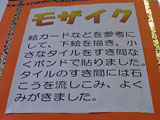 モザイク
絵カードなどを参考に
して、下絵を描き、小
さなタイルをすき間な
くボンドで貼りました。
タイルのすき間には石
こうを流しこみ、よく
みがきました。